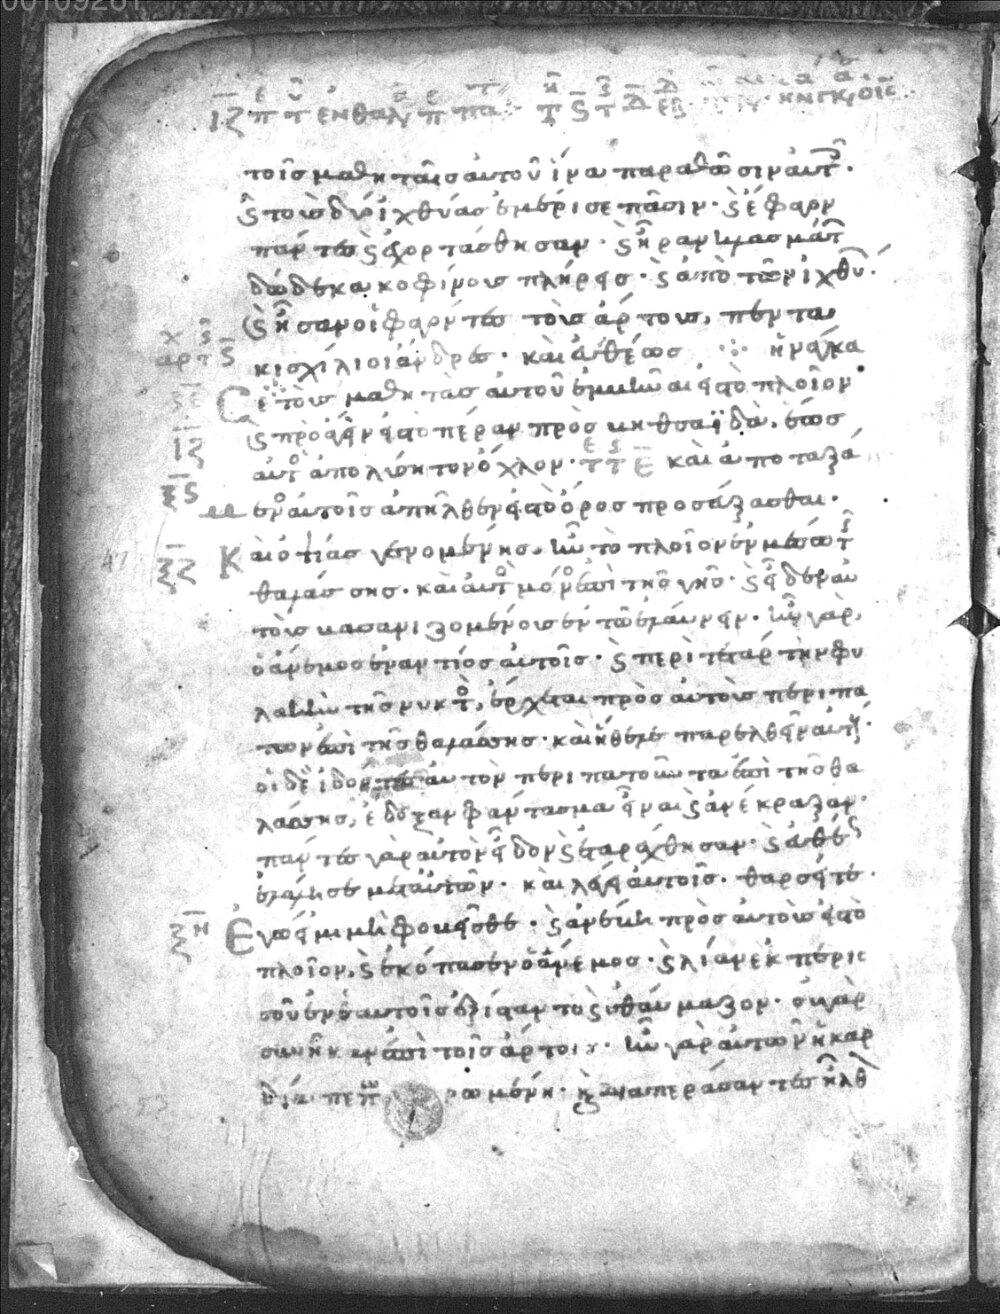 ΙΖ
τοῖς μαθηταῖς αὐτοῦ ἵνα παραθῶσιν αὐτ.
ϛ τοὺς δύο ἰχθύας ἐμέρισε πᾶσιν· ϛ ἔφαγον
πάντες ϛ ἐχορτάσθησαν· ϛ ἦραν κλασμάτ
δώδεκα κοφίνους πλήρεις· ϛ ἀπὸ τῶν ἰχθύ.
ϛ ἦσαν οἱ φαγόντες τοὺς ἄρτους, πεντα
κισχίλιοι ἄνδρες· καὶ εὐθέως ἠνάγκα
σε τοὺς μαθητὰς αὐτοῦ ἐμβῆναι εἰς τὸ πλοῖον
ϛ προάγειν εἰς τὸ πέραν πρὸς βηθσαϊδὰ, ἕως
αὐτὸ ἀπολύσῃ τὸν ὄχλον· καὶ ἀποταξά
μενος αὐτοῖς ἀπῆλθεν εἰς τὸ ὄρος προσεύξασθαι.
Καὶ ὀψίας γενομένης, ἦν τὸ πλοῖον ἐν μέσω τ
θαλάσσης· καὶ αὐτὸ μόνο ἐπὶ τῆς γῆς· ϛ εἶδεν αὐ
τοὺς βασανιζομένους ἐν τῶ ἐλαύνειν· ἦν γὰρ,
ὁ ἄνεμος ἐναντίος αὐτοῖς· ϛ περὶ τετάρτην φυ
λακὴν τῆς νυκτὸ, ἔρχεται πρὸς αὐτοὺς περιπα
τῶν ἐπὶ τῆς θαλάσσης· καὶ ἤθελε παρελθεῖν αὐτ.
οἱ δὲ ἰδόντες αὐτὸν περιπατοῦντα ἐπὶ τῆς θα
λάσσης, ἔδοξαν φάντασμα εἶναι ϛ ἀνέκραξαν·
πάντες γὰρ αὐτὸν εἶδον ϛ ἐταράχθησαν· ϛ εὐθές
ἐλάλησε μετ αὐτῶν· καὶ λέγει αὐτοῖς· θαρσεῖτε·
Ἐγώ εἰμι μὴ φοβεῖσθε· ϛ ἀνέβη πρὸς αὐτοὺς εἰς τὸ
πλοῖον, ϛ ἐκόπασεν ὁ ἄνεμος· ϛ λίαν ἐκ περισ
σοῦ ἐν ἑαυτοῖς ἐξίσταντο ϛ ἐθαύμαζον· οὐ γὰρ
συνῆκαν ἐπὶ τοῖς ἄρτοις· ἦν γὰρ αὐτῶν ἡ καρ
δία πεπωρωμένη· ϗ διαπεράσαντες ἦλθ